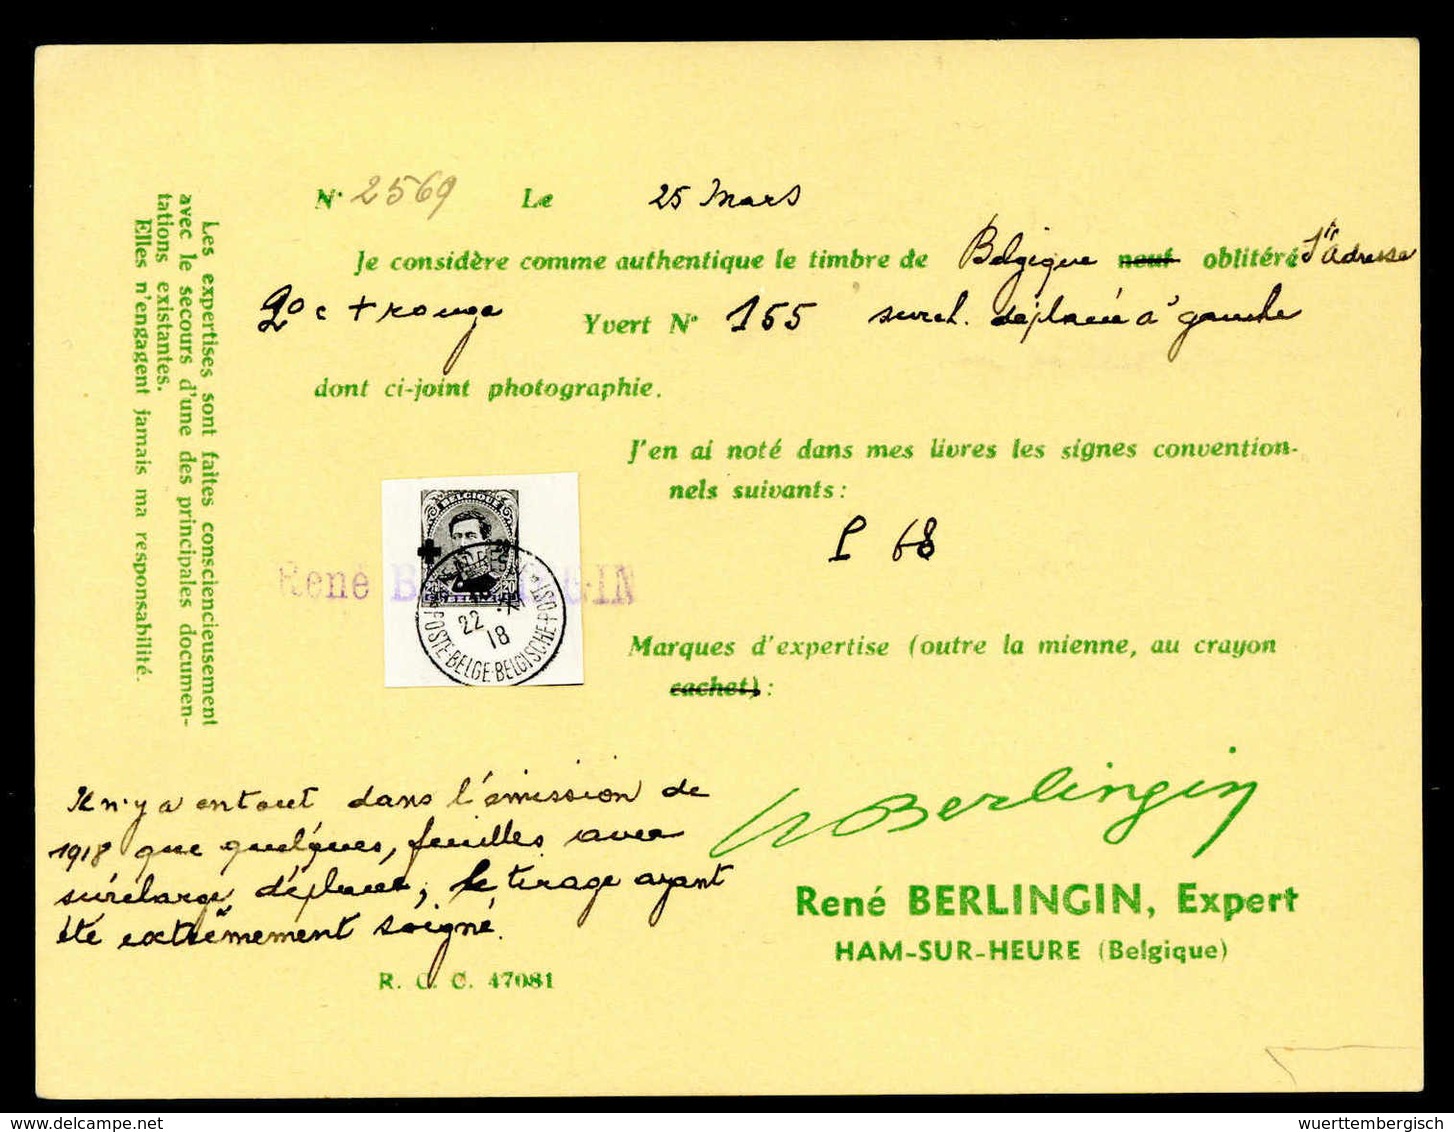 N° 2569 Le 25 Mars
Je considère comme authentique le timbre de Belgique neuf oblitéré Ste Adresse
20 c + rouge Yvert N° 155 surch. déplacée à gauche
dont ci-joint photographie.
J'en ai noté dans mes livres les signes convention-
nels suivants:
68
Marques d'expertise (outre la mienne, au crayon
cachet):
Les expertises sont faites consciencieusement
avec le secours d'une des principales documen-
tations existantes.
Elles n'engagent jamais ma responsabilité.
BELGIQUE
20
22
18
POSTE·BELGE·BELGISCHE·POST
René B G·IN
Il n'y a en tout dans l'émission de
1918 que quelques, feuilles avec
surcharge déplacée, le tirage ayant
été extrêmement soigné.
Berlingin
René BERLINGIN, Expert
HAM-SUR-HEURE (Belgique)
R. C. C. 47081
delcampe.net
wuerttembergisch